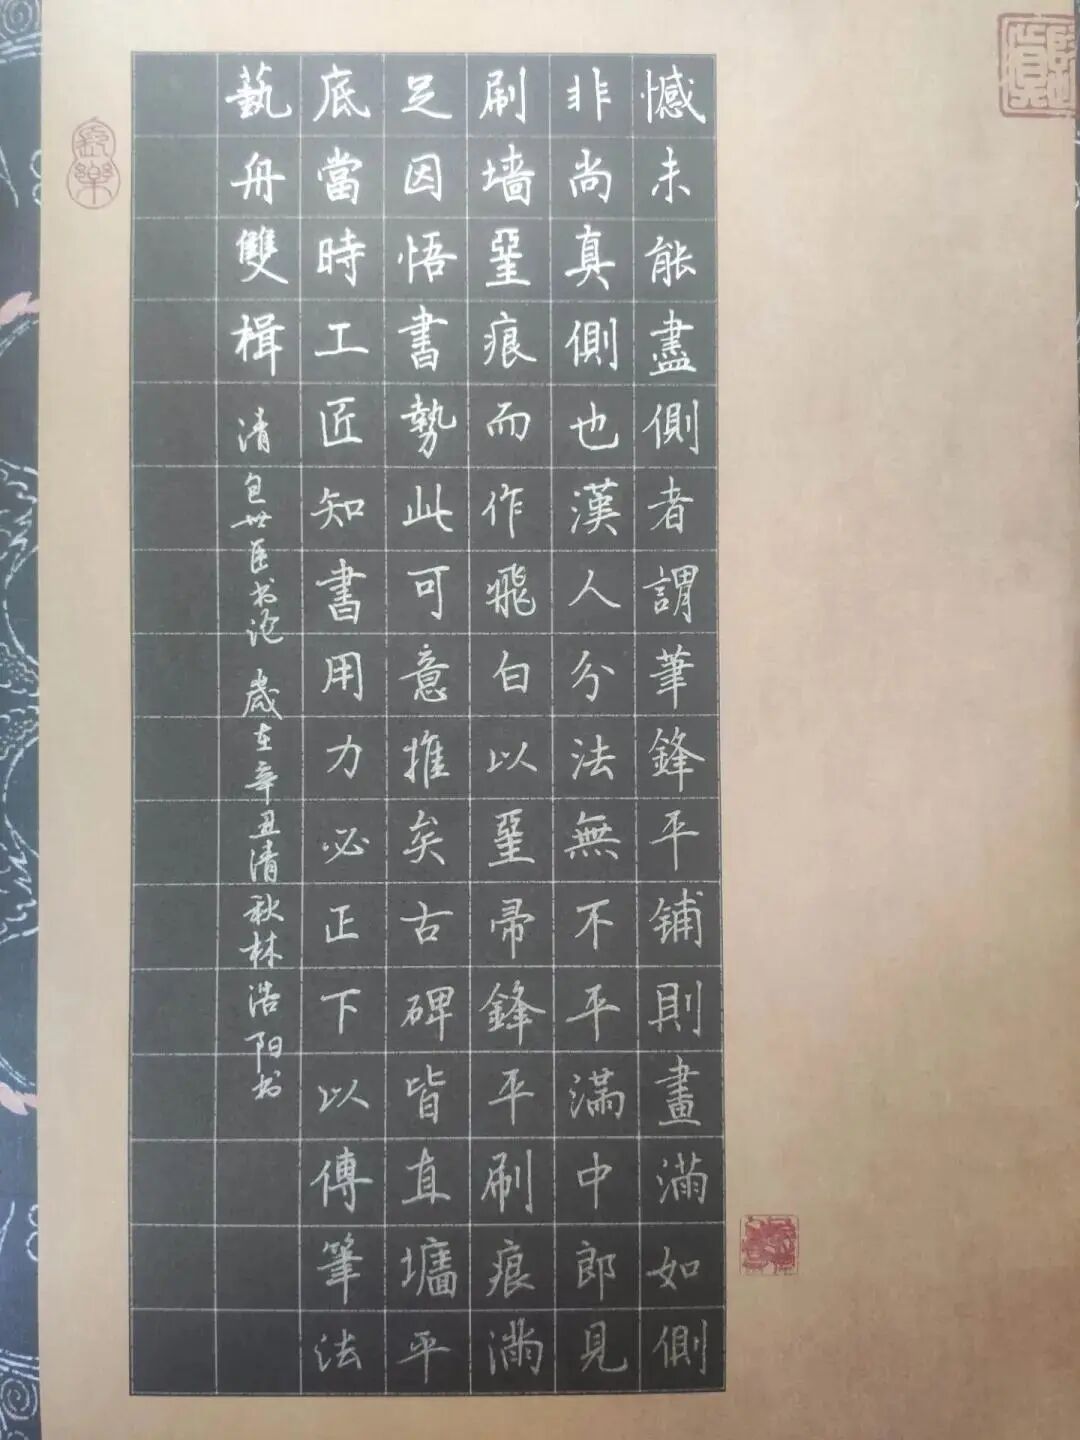 憾未能盡側者謂筆鋒平鋪則畫滿如側
非尚真側也漢人分法無不平滿中郎見
刷墙堊痕而作飛白以堊帚鋒平刷痕滿
足因悟書勢此可意推矣古碑皆直墻平
底當時工匠知書用力必正下以傳筆法
藝舟雙楫 清包世臣书论 歲在辛丑清秋林浩阳书